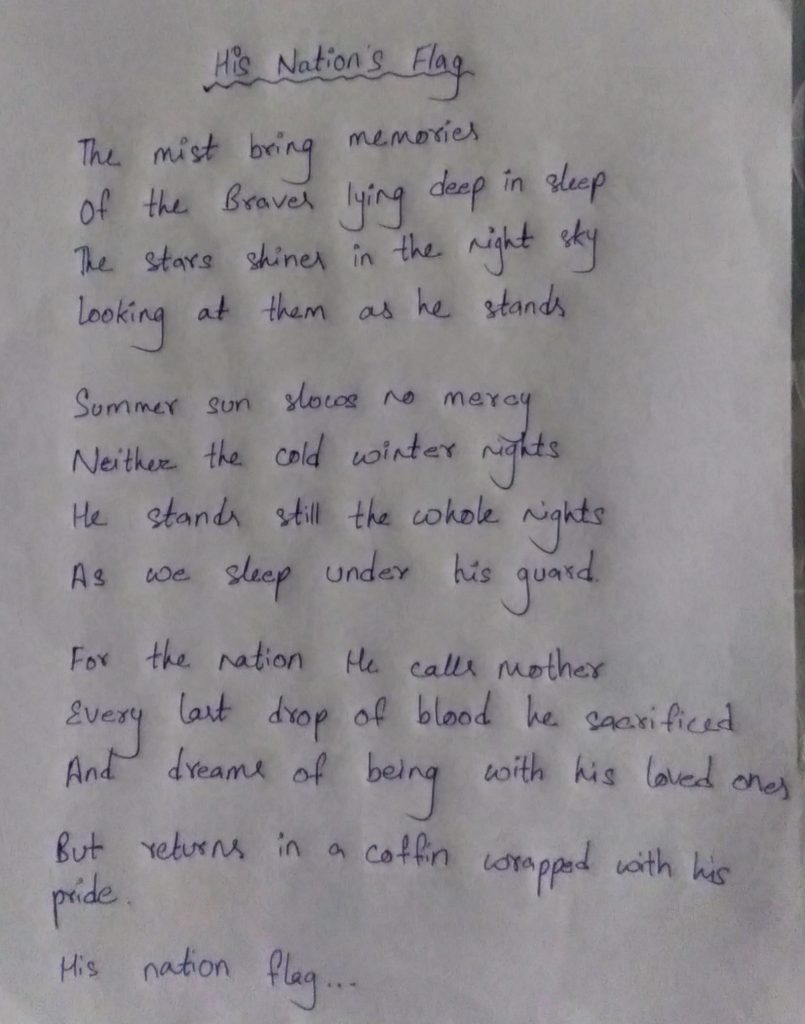 His Nation's Flag
The mist bring memories
Of the Braves lying deep in sleep
The stars shines in the night sky
Looking at them as he stands
Summer sun slows no mercy
Neither the cold winter nights
He stands still the whole nights
As we sleep under his guard.
For the nation He calls Mother
Every last drop of blood he sacrificed
And dreams of being with his loved ones
But returns in a coffin wrapped with his
pride.
His nation flag...